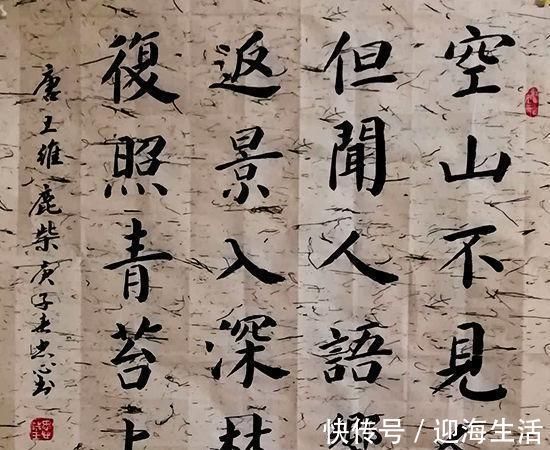 空山不見
但聞人語響
返景入深林
復照青苔上
唐王維鹿柴庚子春
快传号 / 迎海生活